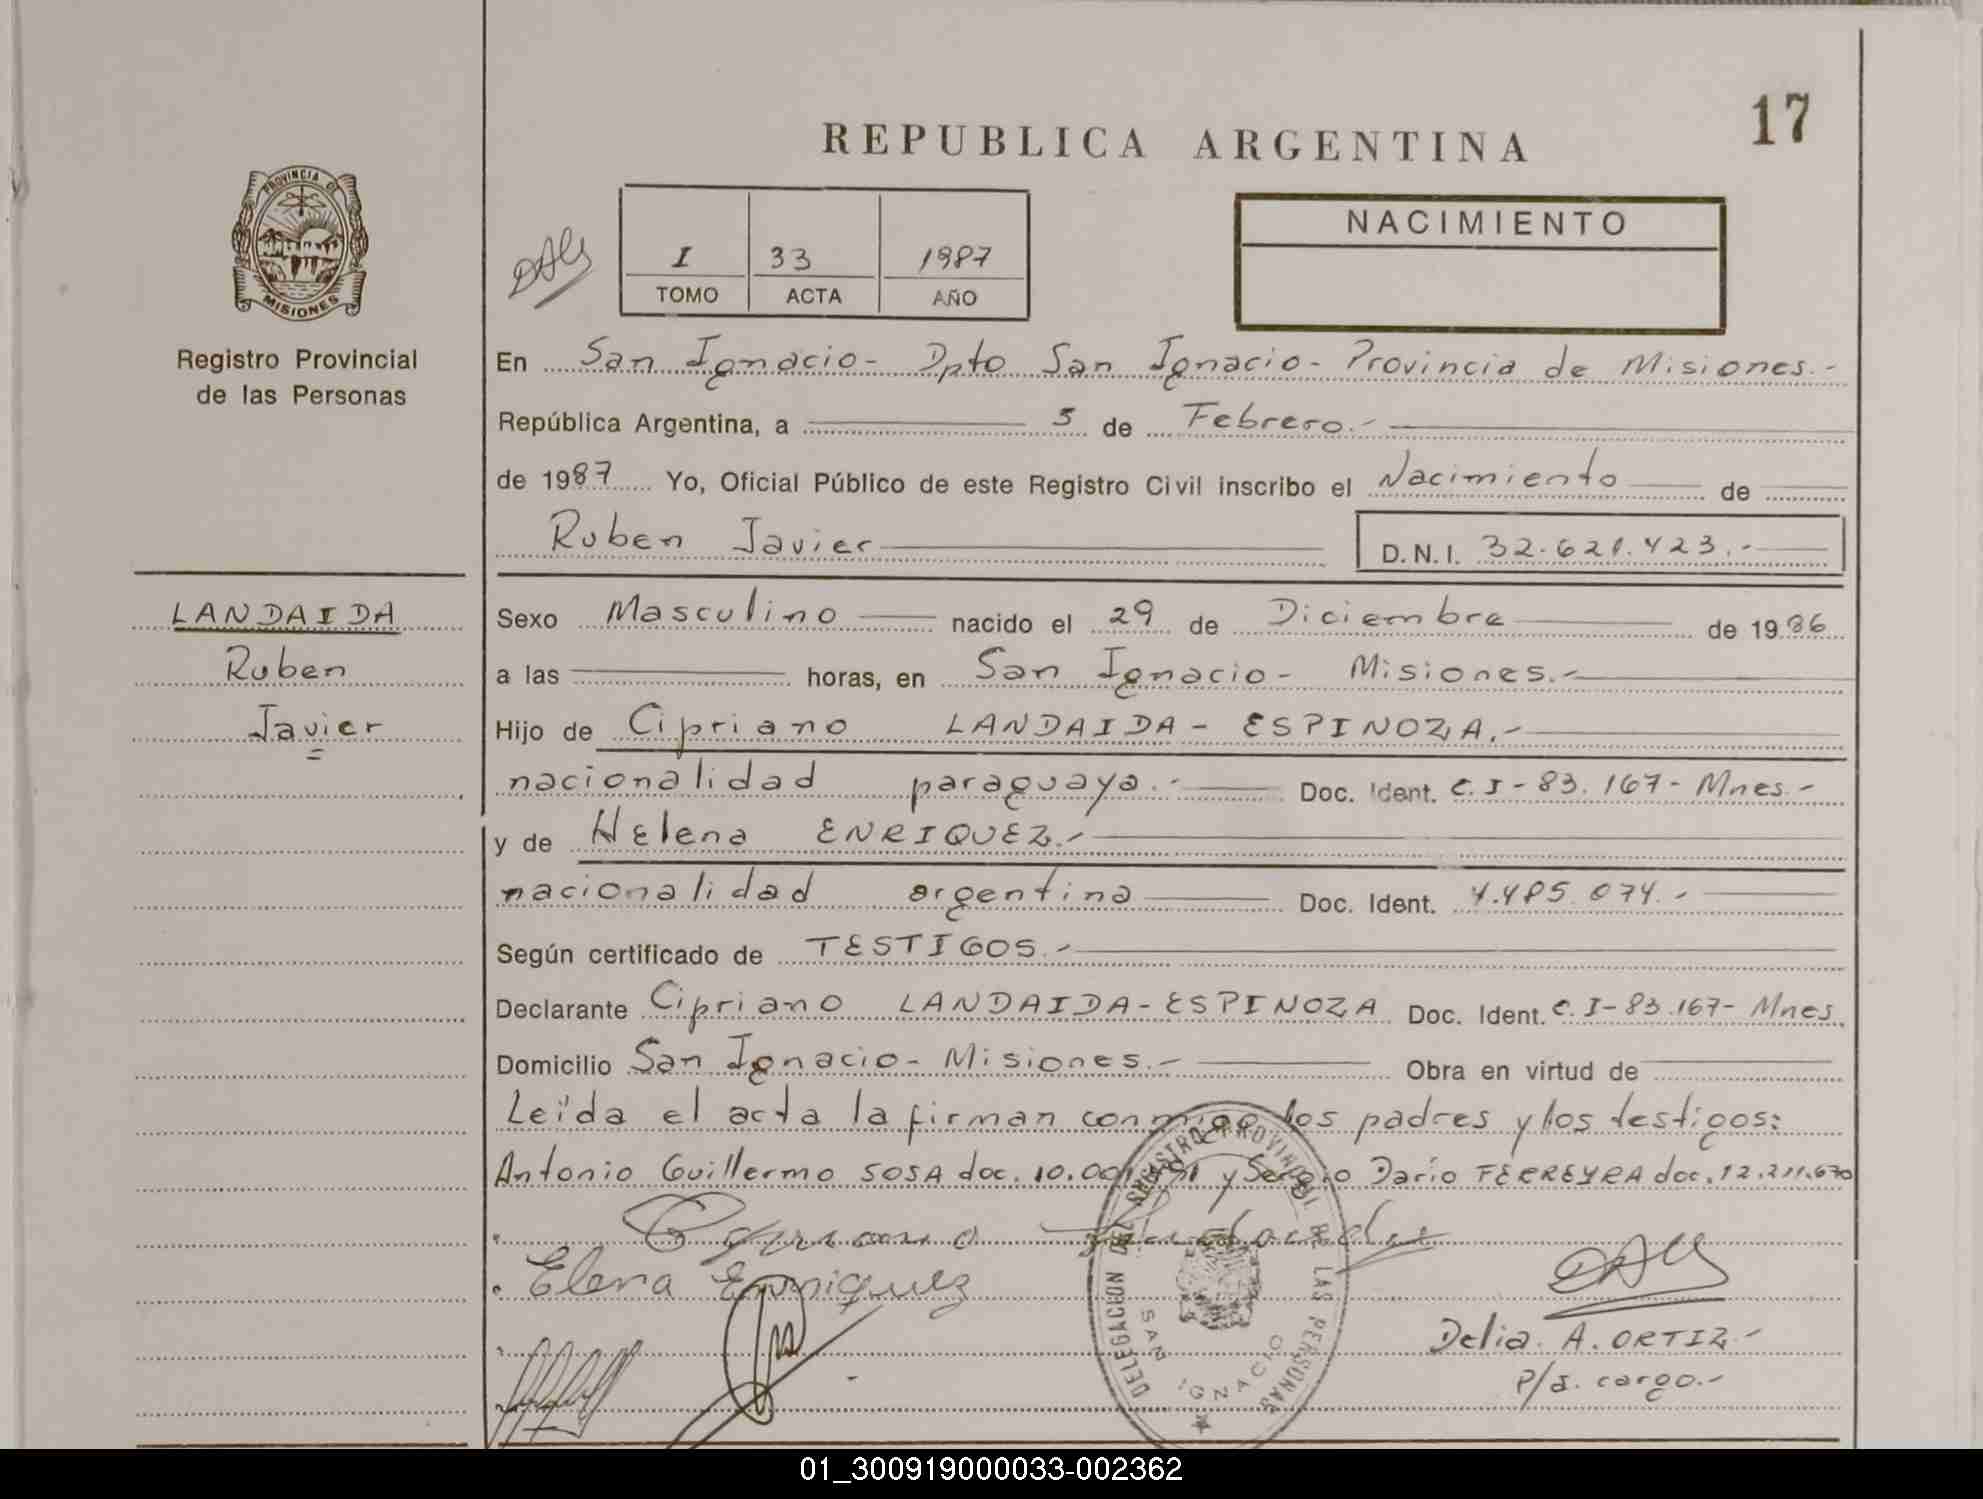 17
REPUBLICA ARGENTINA
PROVINCIA DE
MISIONES
Registro Provincial
de las Personas
NACIMIENTO
I 33 1987
TOMO ACTA AÑO
En San Ignacio - Dpto San Ignacio - Provincia de Misiones.-
República Argentina, a 5 de Febrero.-
de 1987 Yo, Oficial Público de este Registro Civil inscribo el Nacimiento de
Ruben Javier D.N.I. 32.621.423.-
LANDAIDA
Ruben
Javier
Sexo Masculino nacido el 29 de Diciembre de 1986
a las horas, en San Ignacio - Misiones.-
Hijo de Cipriano LANDAIDA - ESPINOZA.-
nacionalidad paraguaya.- Doc. Ident. C.I - 83.167 - Mnes.-
y de Helena ENRIQUEZ.-
nacionalidad argentina Doc. Ident. 4.485.074.-
Según certificado de TESTIGOS.-
Declarante Cipriano LANDAIDA - ESPINOZA Doc. Ident. C.I - 83.167 - Mnes.
Domicilio San Ignacio - Misiones.- Obra en virtud de
Leída el acta la firman conmigo los padres y los testigos:
Antonio Guillermo SOSA doc. y Sergio Darío FERREYRA doc. 12.211.670
Elena Enriquez
DELEGACION DEL REGISTRO PROVINCIAL DE LAS PERSONAS
SAN IGNACIO
Delia A. ORTIZ.-
P/a. cargo.-
01_300919000033-002362